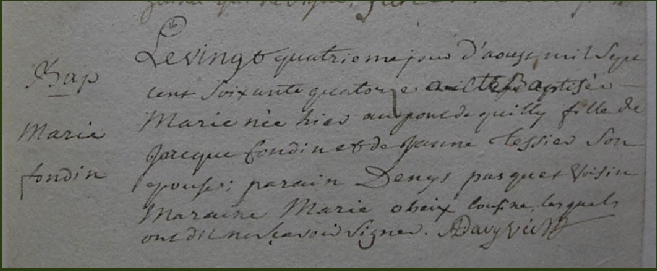 Bap
Marie
fondin
Le vingt quatrieme jour d'aoust mil sept
cent soixante quatorze a eté Baptisée
Marie née hier au pont de quilly fille de
jacque fondin et de jeanne tessier son
epouse; parain Denys pasquet voisin
Maraine Marie obeix cousine lesquels
ont dit ne sçavoir signer.